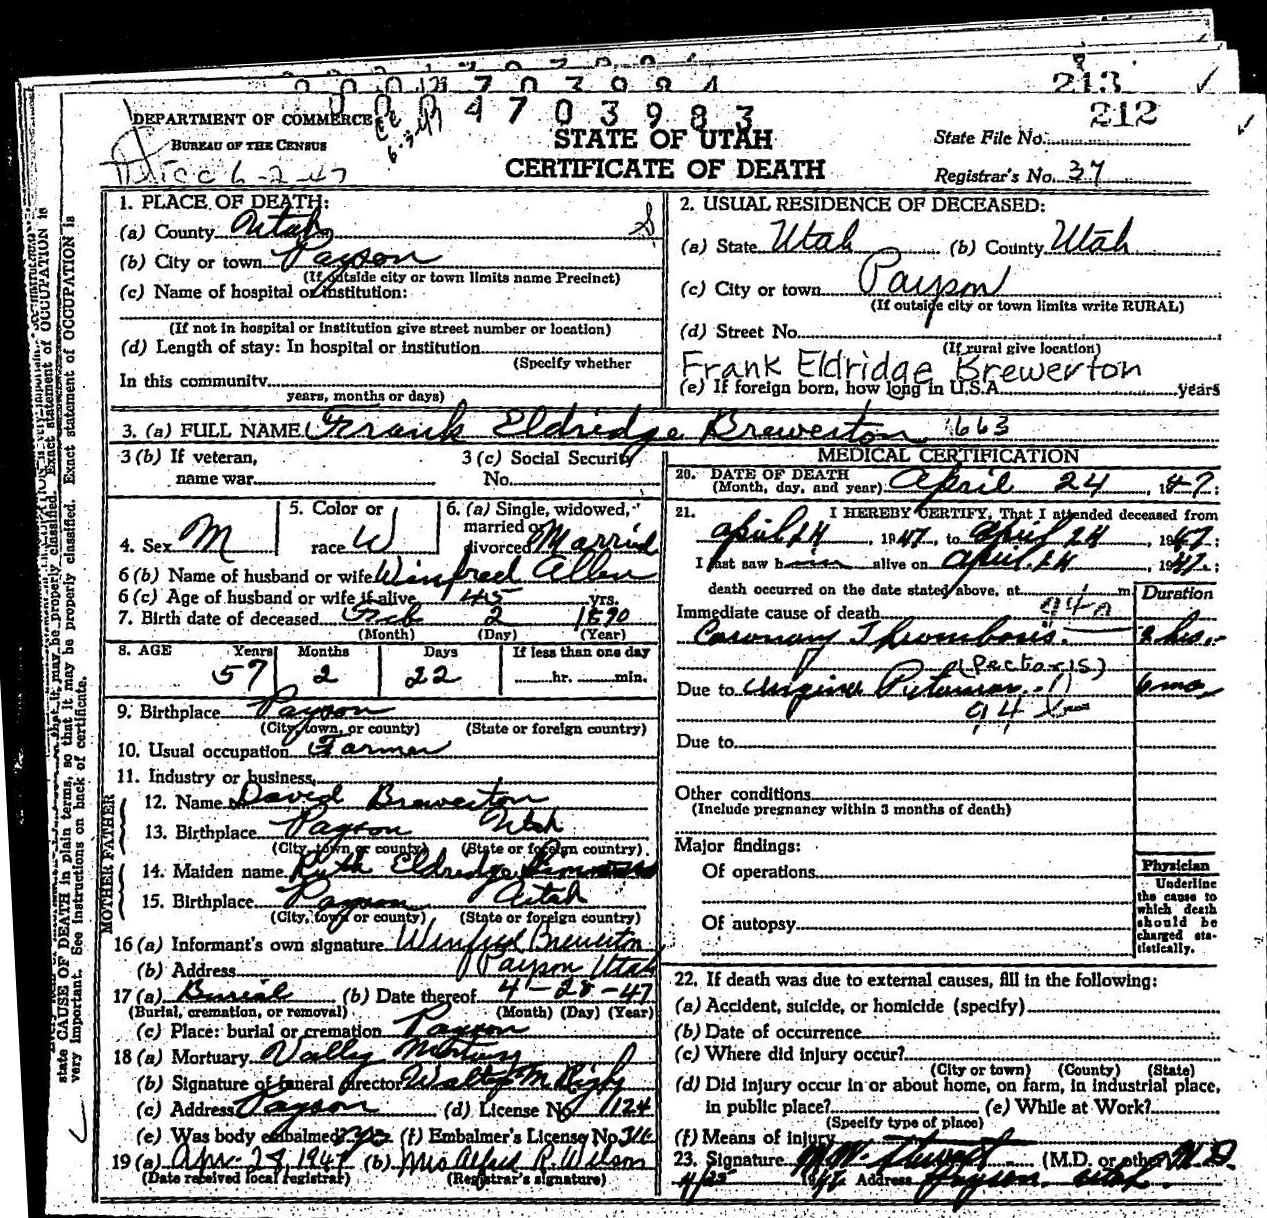 4703983
213
212
DEPARTMENT OF COMMERCE
BUREAU OF THE CENSUS
6-2-47
STATE OF UTAH
CERTIFICATE OF DEATH
State File No.
Registrar's No. 37
1. PLACE OF DEATH:
(a) County Utah
(b) City or town Payson
(If outside city or town limits name Precinct)
(c) Name of hospital or institution:
(If not in hospital or institution give street number or location)
(d) Length of stay: In hospital or institution
(Specify whether
In this community
years, months or days)
2. USUAL RESIDENCE OF DECEASED:
(a) State Utah (b) County Utah
(c) City or town Payson
(If outside city or town limits write RURAL)
(d) Street No.
(If rural give location)
Frank Eldridge Brewerton
(e) If foreign born, how long in U.S.A. years
3. (a) FULL NAME Frank Eldridge Brewerton 663
3 (b) If veteran, name war
3 (c) Social Security No.
4. Sex M
5. Color or race W
6. (a) Single, widowed, married or divorced Married
6 (b) Name of husband or wife Winifred Allen
6 (c) Age of husband or wife if alive 45 yrs.
7. Birth date of deceased Feb 2 1890
(Month) (Day) (Year)
8. AGE Years Months Days If less than one day
57 2 22 hr. min.
9. Birthplace Payson
(City, town, or county) (State or foreign country)
10. Usual occupation Farmer
11. Industry or business
FATHER
12. Name David Brewerton
13. Birthplace Payson Utah
(City, town or county) (State or foreign country)
MOTHER
14. Maiden name Ruth Eldredge
15. Birthplace Payson Utah
(City, town or county) (State or foreign country)
16 (a) Informant's own signature Winifred Brewerton
(b) Address Payson Utah
17 (a) Burial (b) Date thereof 4-28-47
(Burial, cremation, or removal) (Month) (Day) (Year)
(c) Place: burial or cremation Payson
18 (a) Mortuary Valley Mortuary
(b) Signature of funeral director
(c) Address Payson (d) License No. 1124
(e) Was body embalmed? yes (f) Embalmer's License No. 316
19 (a) Apr. 28, 1947 (b) Mrs Alfred R. Wilson
(Date received local registrar) (Registrar's signature)
MEDICAL CERTIFICATION
20. DATE OF DEATH
(Month, day, and year) April 24, 1947;
21. I HEREBY CERTIFY, That I attended deceased from
April 24, 1947, to April 24, 1947;
I last saw him alive on April 24, 1947;
death occurred on the date stated above, at m.
Duration
Immediate cause of death 94a
Coronary Thrombosis 2 hrs.
(Pectoris)
Due to Angina 6 mo
94
Due to
Other conditions
(Include pregnancy within 3 months of death)
Major findings:
Of operations
Of autopsy
Physician
Underline the cause to which death should be charged statistically.
22. If death was due to external causes, fill in the following:
(a) Accident, suicide, or homicide (specify)
(b) Date of occurrence
(c) Where did injury occur?
(City or town) (County) (State)
(d) Did injury occur in or about home, on farm, in industrial place,
in public place? (e) While at Work?
(Specify type of place)
(f) Means of injury
23. Signature (M.D. or other) M.D.
4/25 1947 Address Payson Utah.
state CAUSE OF DEATH in plain terms, so that it may be properly classified. Exact statement of OCCUPATION is
very important. See instructions on back of certificate.